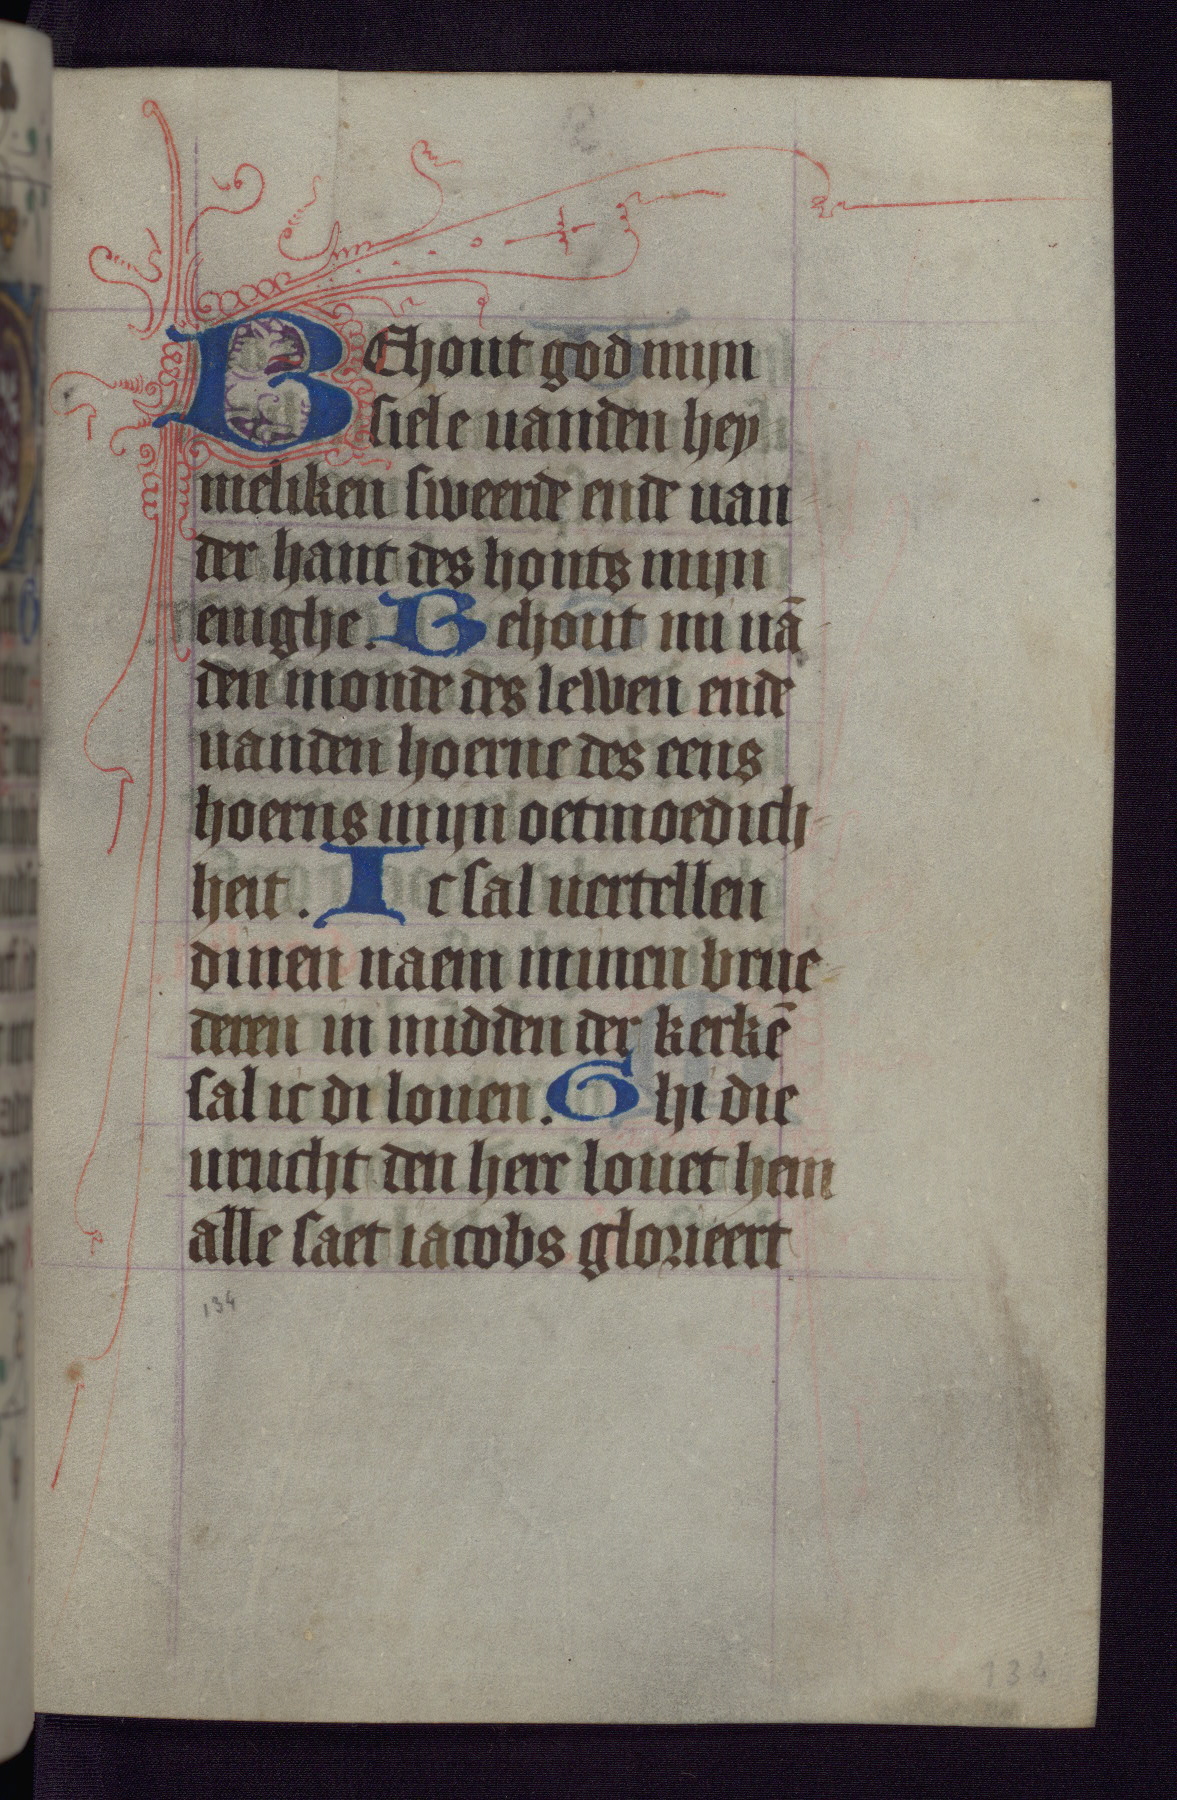 BEhout god mijn
siele uanden hey
meliken sweerde ende uan
der hant des honts mijn
enighe. Behout mi uā
den monde des lewen ende
uanden hoerne des eens
hoerns mijn oetmoedich
heit. Ic sal uertellen
dinen naem minen brue
deren in midden der kerkē
sal ic di louen. Ghi die
urucht den here louet hem
alle saet iacobs glorieert
134
134